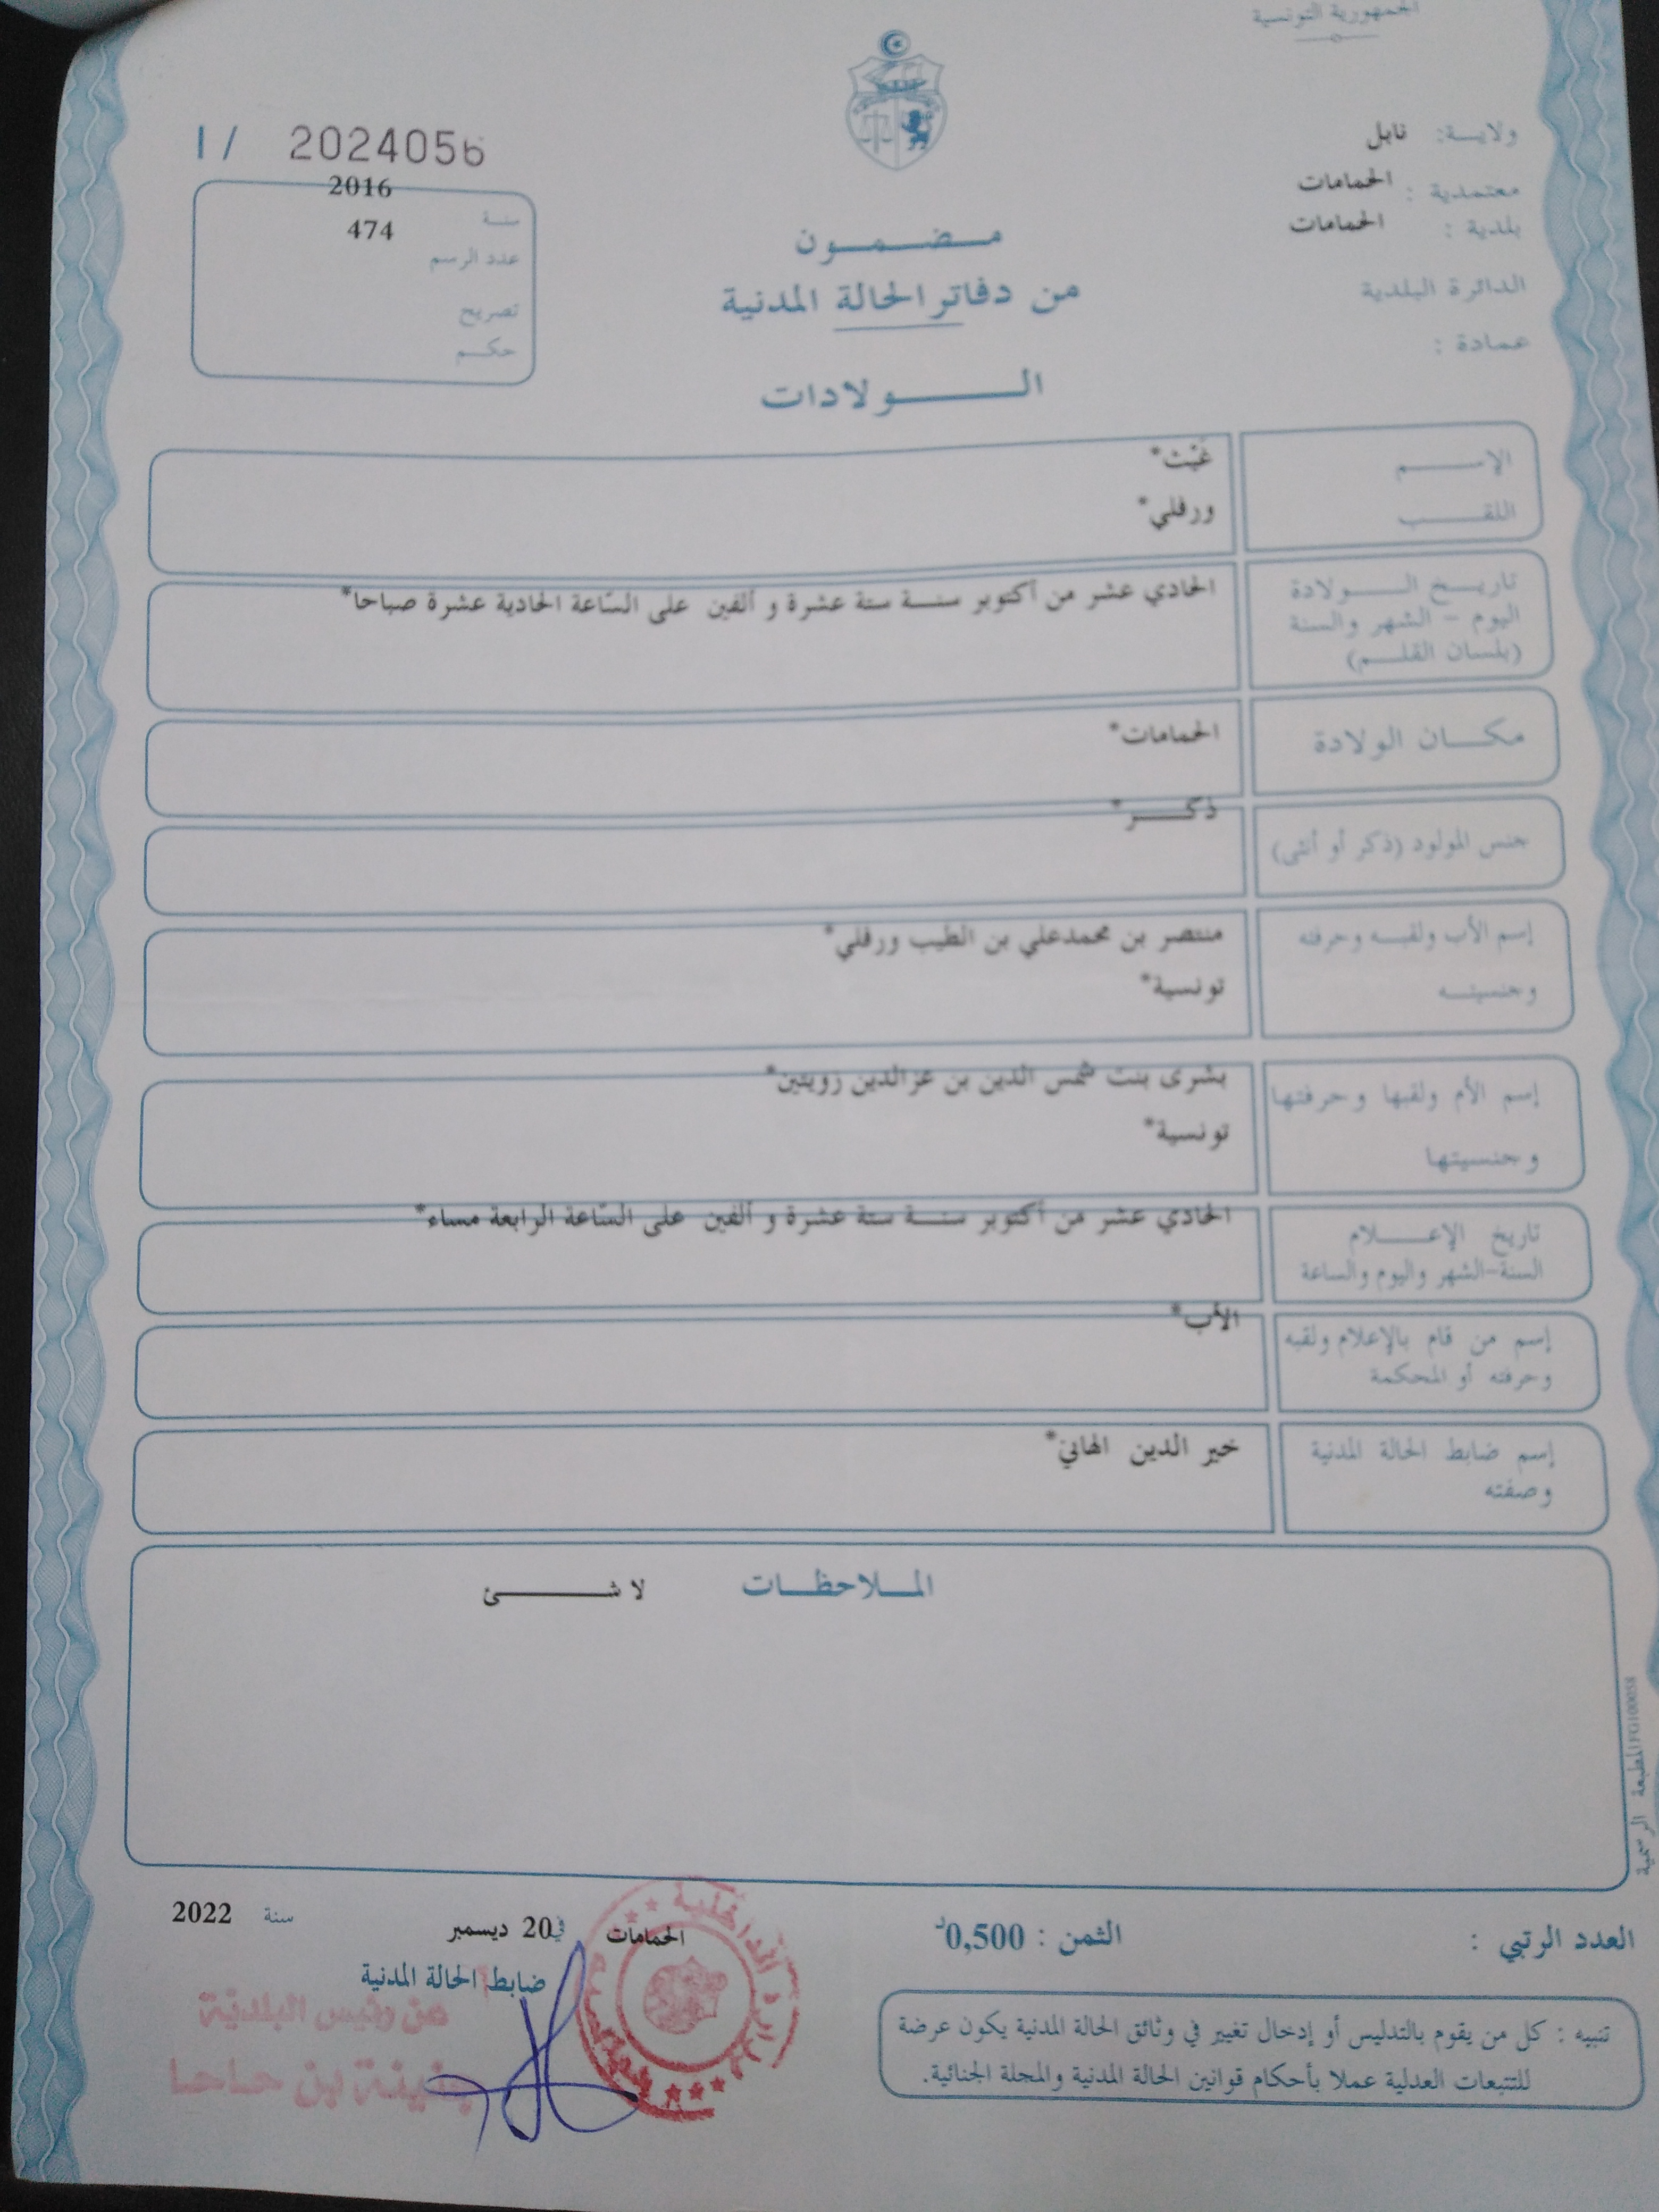 الجمهورية التونسية
ولايـــة: نابل
معتمدية : الحمامات
بلدية : الحمامات
الدائرة البلدية
عمادة :
I / 2024056
2016
سنة
474
عدد الرسم
تصريح
حكـــم
مـــضـــمـــون
من دفاتر الحالة المدنية
الـــــولادات
الإســـــم غيث*
اللقـــــب ورفلي*
تاريـــخ الـــــولادة الحادي عشر من أكتوبر سنـــة ستة عشرة و ألفين على السّاعة الحادية عشرة صباحا*
اليوم - الشهر والسنة
(بلسان القلـــم)
مكـــان الولادة الحمامات*
جنس المولود (ذكر أو أنثى) ذكـــــر*
إسم الأب ولقبـــه وحرفته منتصر بن محمدعلي بن الطيب ورفلي*
وجنسيتـــه تونسية*
إسم الأم ولقبها وحرفتها بشرى بنت شمس الدين بن عزالدين زويتين*
وجنسيتها تونسية*
تاريخ الإعـــــلام الحادي عشر من أكتوبر سنـــة ستة عشرة و ألفين على السّاعة الرابعة مساء*
السنة-الشهر واليوم والساعة
إسم من قام بالإعلام ولقبه الأب*
وحرفته أو المحكمة
إسم ضابط الحالة المدنية خير الدين الهاني*
وصفته
المـــلاحظـــات لا شـــــئ
المطبعة الرسمية FG100058
العدد الرتبي :
الثمن : 0,500د
الحمامات في 20 ديسمبر سنة 2022
ضابط الحالة المدنية
عن رئيس البلدية
بن حاحا
تنبيه : كل من يقوم بالتدليس أو إدخال تغيير في وثائق الحالة المدنية يكون عرضة
للتتبعات العدلية عملا بأحكام قوانين الحالة المدنية والمجلة الجنائية.